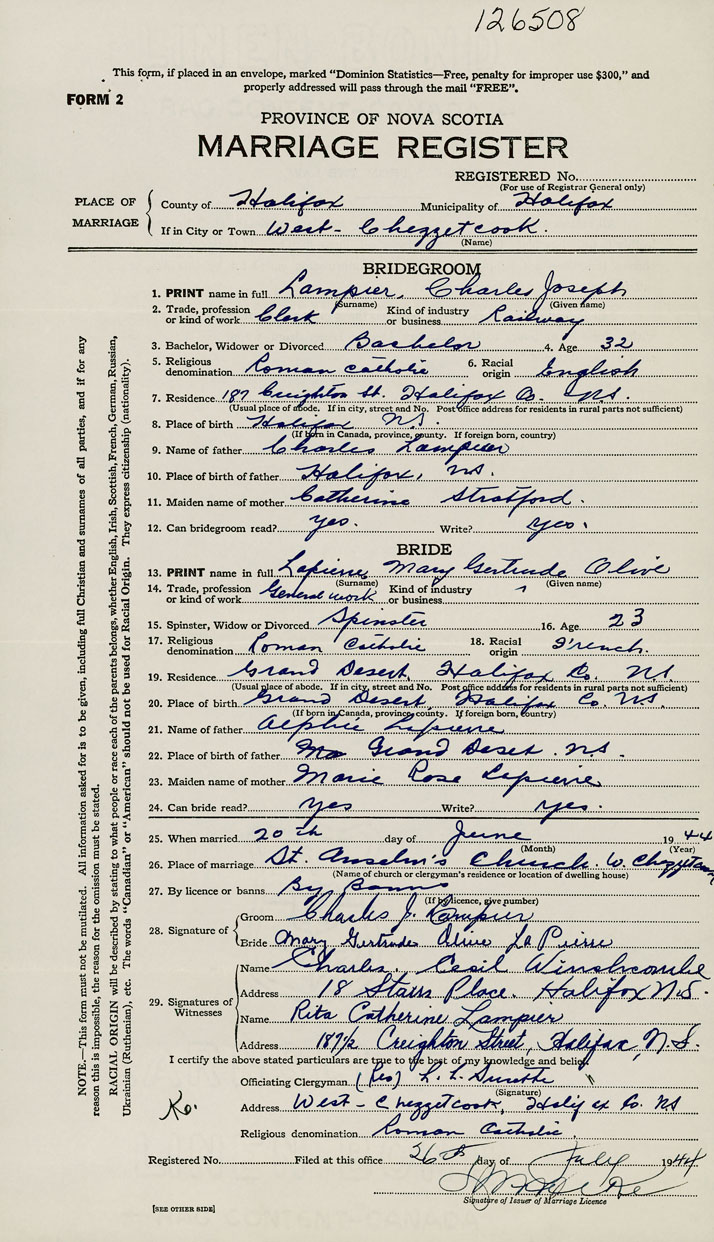 126508
This form, if placed in an envelope, marked "Dominion Statistics—Free, penalty for improper use $300," and
properly addressed will pass through the mail "FREE".
FORM 2
PROVINCE OF NOVA SCOTIA
MARRIAGE REGISTER
REGISTERED No.
(For use of Registrar General only)
PLACE OF MARRIAGE
County of Halifax Municipality of Halifax
If in City or Town West-Chezzetcook.
(Name)
BRIDEGROOM
1. PRINT name in full Lampier, Charles Joseph
(Surname) (Given name)
2. Trade, profession or kind of work Clerk Kind of industry or business Railway
3. Bachelor, Widower or Divorced Bachelor 4. Age 32
5. Religious denomination Roman Catholic 6. Racial origin English
7. Residence 187 Creighton St. Halifax Co. NS.
(Usual place of abode. If in city, street and No. Post office address for residents in rural parts not sufficient)
8. Place of birth Halifax N.S.
(If born in Canada, province, county. If foreign born, country)
9. Name of father Charles Lampier
10. Place of birth of father Halifax, NS.
11. Maiden name of mother Catherine Stratford.
12. Can bridegroom read? yes. Write? yes.
BRIDE
13. PRINT name in full Lapierre, Mary Gertrude Olive
(Surname) (Given name)
14. Trade, profession or kind of work General work Kind of industry or business
15. Spinster, Widow or Divorced Spinster 16. Age 23
17. Religious denomination Roman Catholic 18. Racial origin French.
19. Residence Grand Desert, Halifax Co. NS
(Usual place of abode. If in city, street and No. Post office address for residents in rural parts not sufficient)
20. Place of birth Grand Desert, Halifax Co. N.S.
(If born in Canada, province, county. If foreign born, country)
21. Name of father Lapierre
22. Place of birth of father Grand Deset. N.S.
23. Maiden name of mother Marie Rose Lapierre
24. Can bride read? yes Write? yes.
25. When married 20th day of June 1944
(Month) (Year)
26. Place of marriage St. Anselm's Church. W.
(Name of church or clergyman's residence or location of dwelling house)
27. By licence or banns By Banns
(If by licence, give number)
28. Signature of
Groom Charles J. Lampier
Bride Mary Gertrude Olive LaPierre
29. Signatures of Witnesses
Name Charles. Cecil Winshcombe
Address 18 Stairs Place. Halifax N.S.
Name Rita Catherine Lampier
Address 187½ Creighton Street, Halifax, N.S.
I certify the above stated particulars are true to the best of my knowledge and belief,
Officiating Clergyman (Rev) L. L.
(Signature)
Address West-Chezzetcook, Halifax Co. NS
Religious denomination Roman Catholic.
Registered No. Filed at this office 26th day of July 1944
Signature of Issuer of Marriage Licence
[SEE OTHER SIDE]
NOTE.—This form must not be mutilated. All information asked for is to be given, including full Christian and surnames of all parties, and if for any
reason this is impossible, the reason for the omission must be stated.
RACIAL ORIGIN will be described by stating to what people or race each of the parents belongs, whether English, Irish, Scottish, French, German, Russian,
Ukrainian (Ruthenian), etc. The words "Canadian" or "American" should not be used for Racial Origin. They express citizenship (nationality).